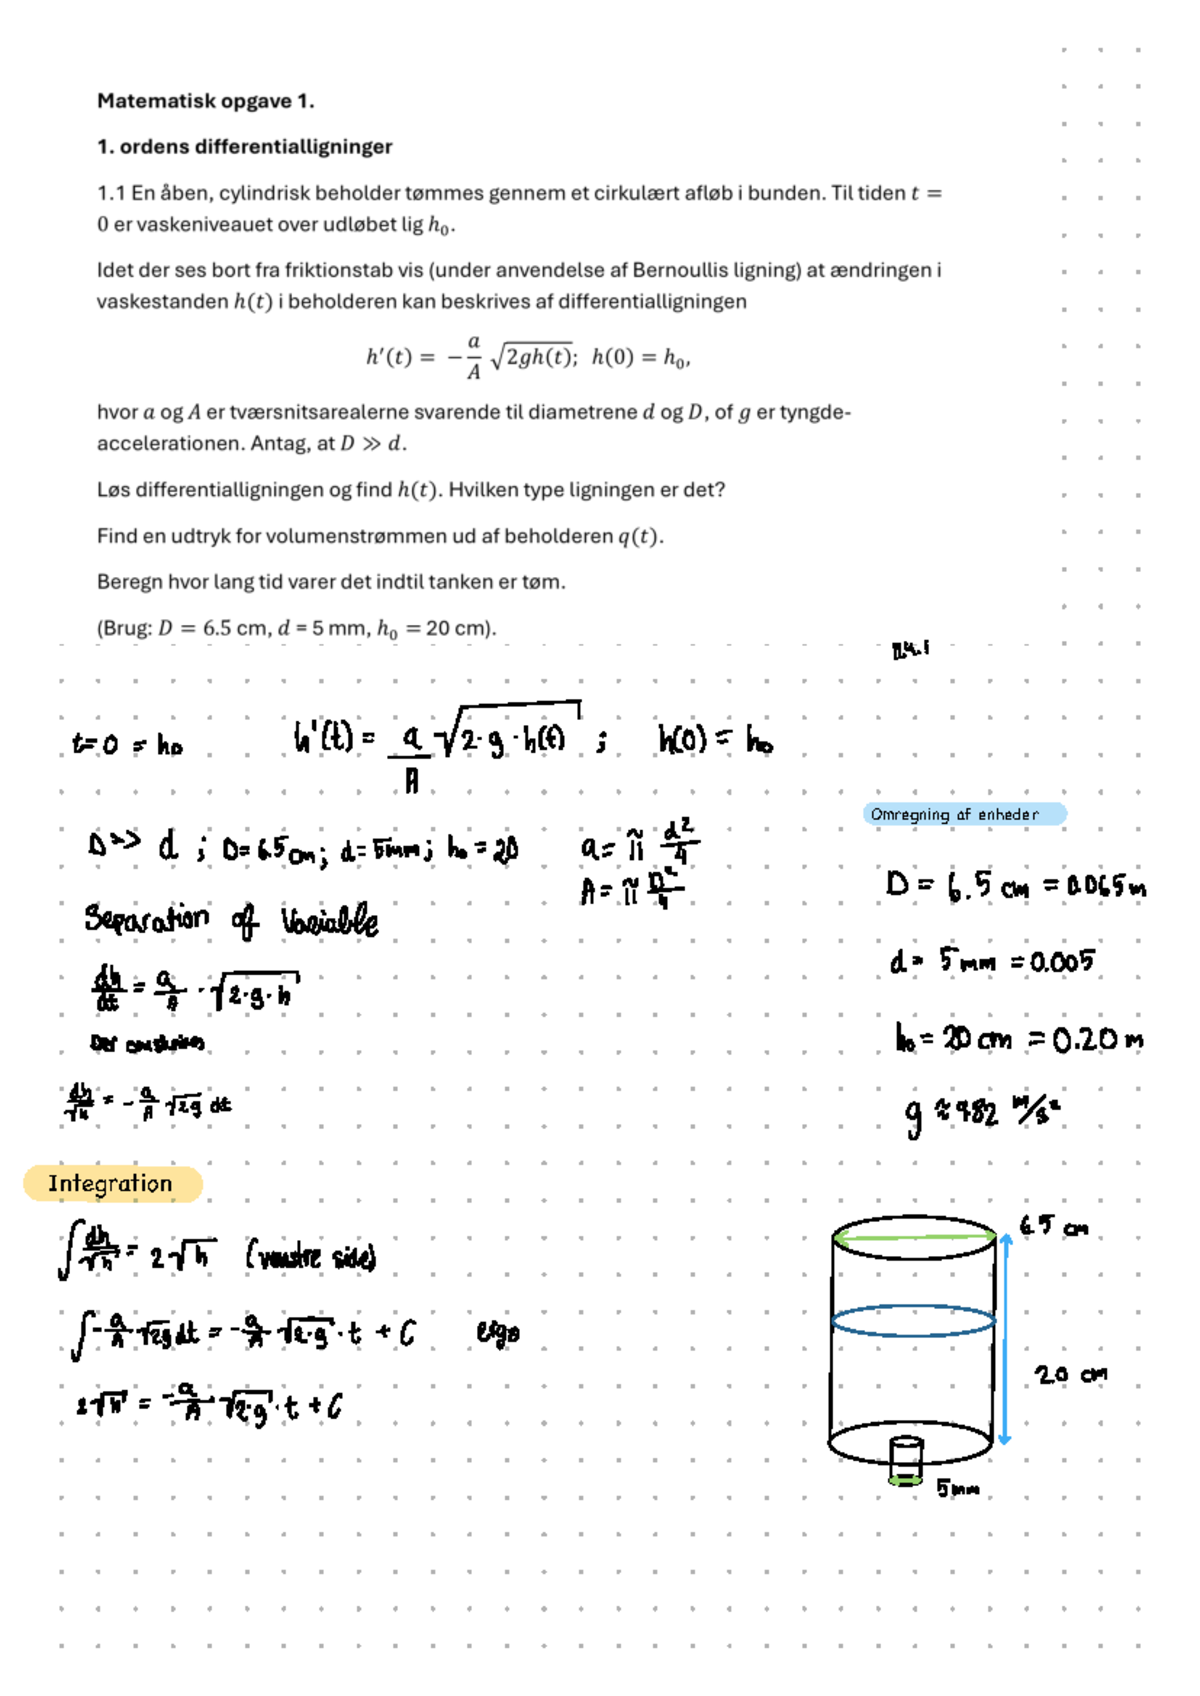 Matematisk opgave 1.
1. ordens differentialligninger
1.1 En åben, cylindrisk beholder tømmes gennem et cirkulært afløb i bunden. Til tiden t =
0 er vaskeniveauet over udløbet lig h₀.
Idet der ses bort fra friktionstab vis (under anvendelse af Bernoullis ligning) at ændringen i
vaskestanden h(t) i beholderen kan beskrives af differentialligningen
h′(t) = −a/A √(2gh(t)); h(0) = h₀,
hvor a og A er tværsnitsarealerne svarende til diametrene d og D, of g er tyngde-
accelerationen. Antag, at D ≫ d.
Løs differentialligningen og find h(t). Hvilken type ligningen er det?
Find en udtryk for volumenstrømmen ud af beholderen q(t).
Beregn hvor lang tid varer det indtil tanken er tøm.
(Brug: D = 6.5 cm, d = 5 mm, h₀ = 20 cm).
t=0 = h₀ h'(t) = a/A √(2·g·h(t)) ; h(0) = h₀
D>> d ; D=6.5cm; d=5mm; h₀=20 a= π d²/4
A= π D²/4
Separation of Variable
dh/dt = a/A · √(2·g·h)
dh/√h = -a/A √2g dt
Omregning af enheder
D = 6.5 cm = 0.065 m
d = 5 mm = 0.005
h₀ = 20 cm = 0.20 m
g ≈ 982 m/s²
Integration
∫ dh/√h = 2√h (venstre side)
∫ -a/A √2g dt = -a/A √2·g · t + C ergo
2√h = -a/A √2·g · t + C
6.5 cm
20 cm
5mm